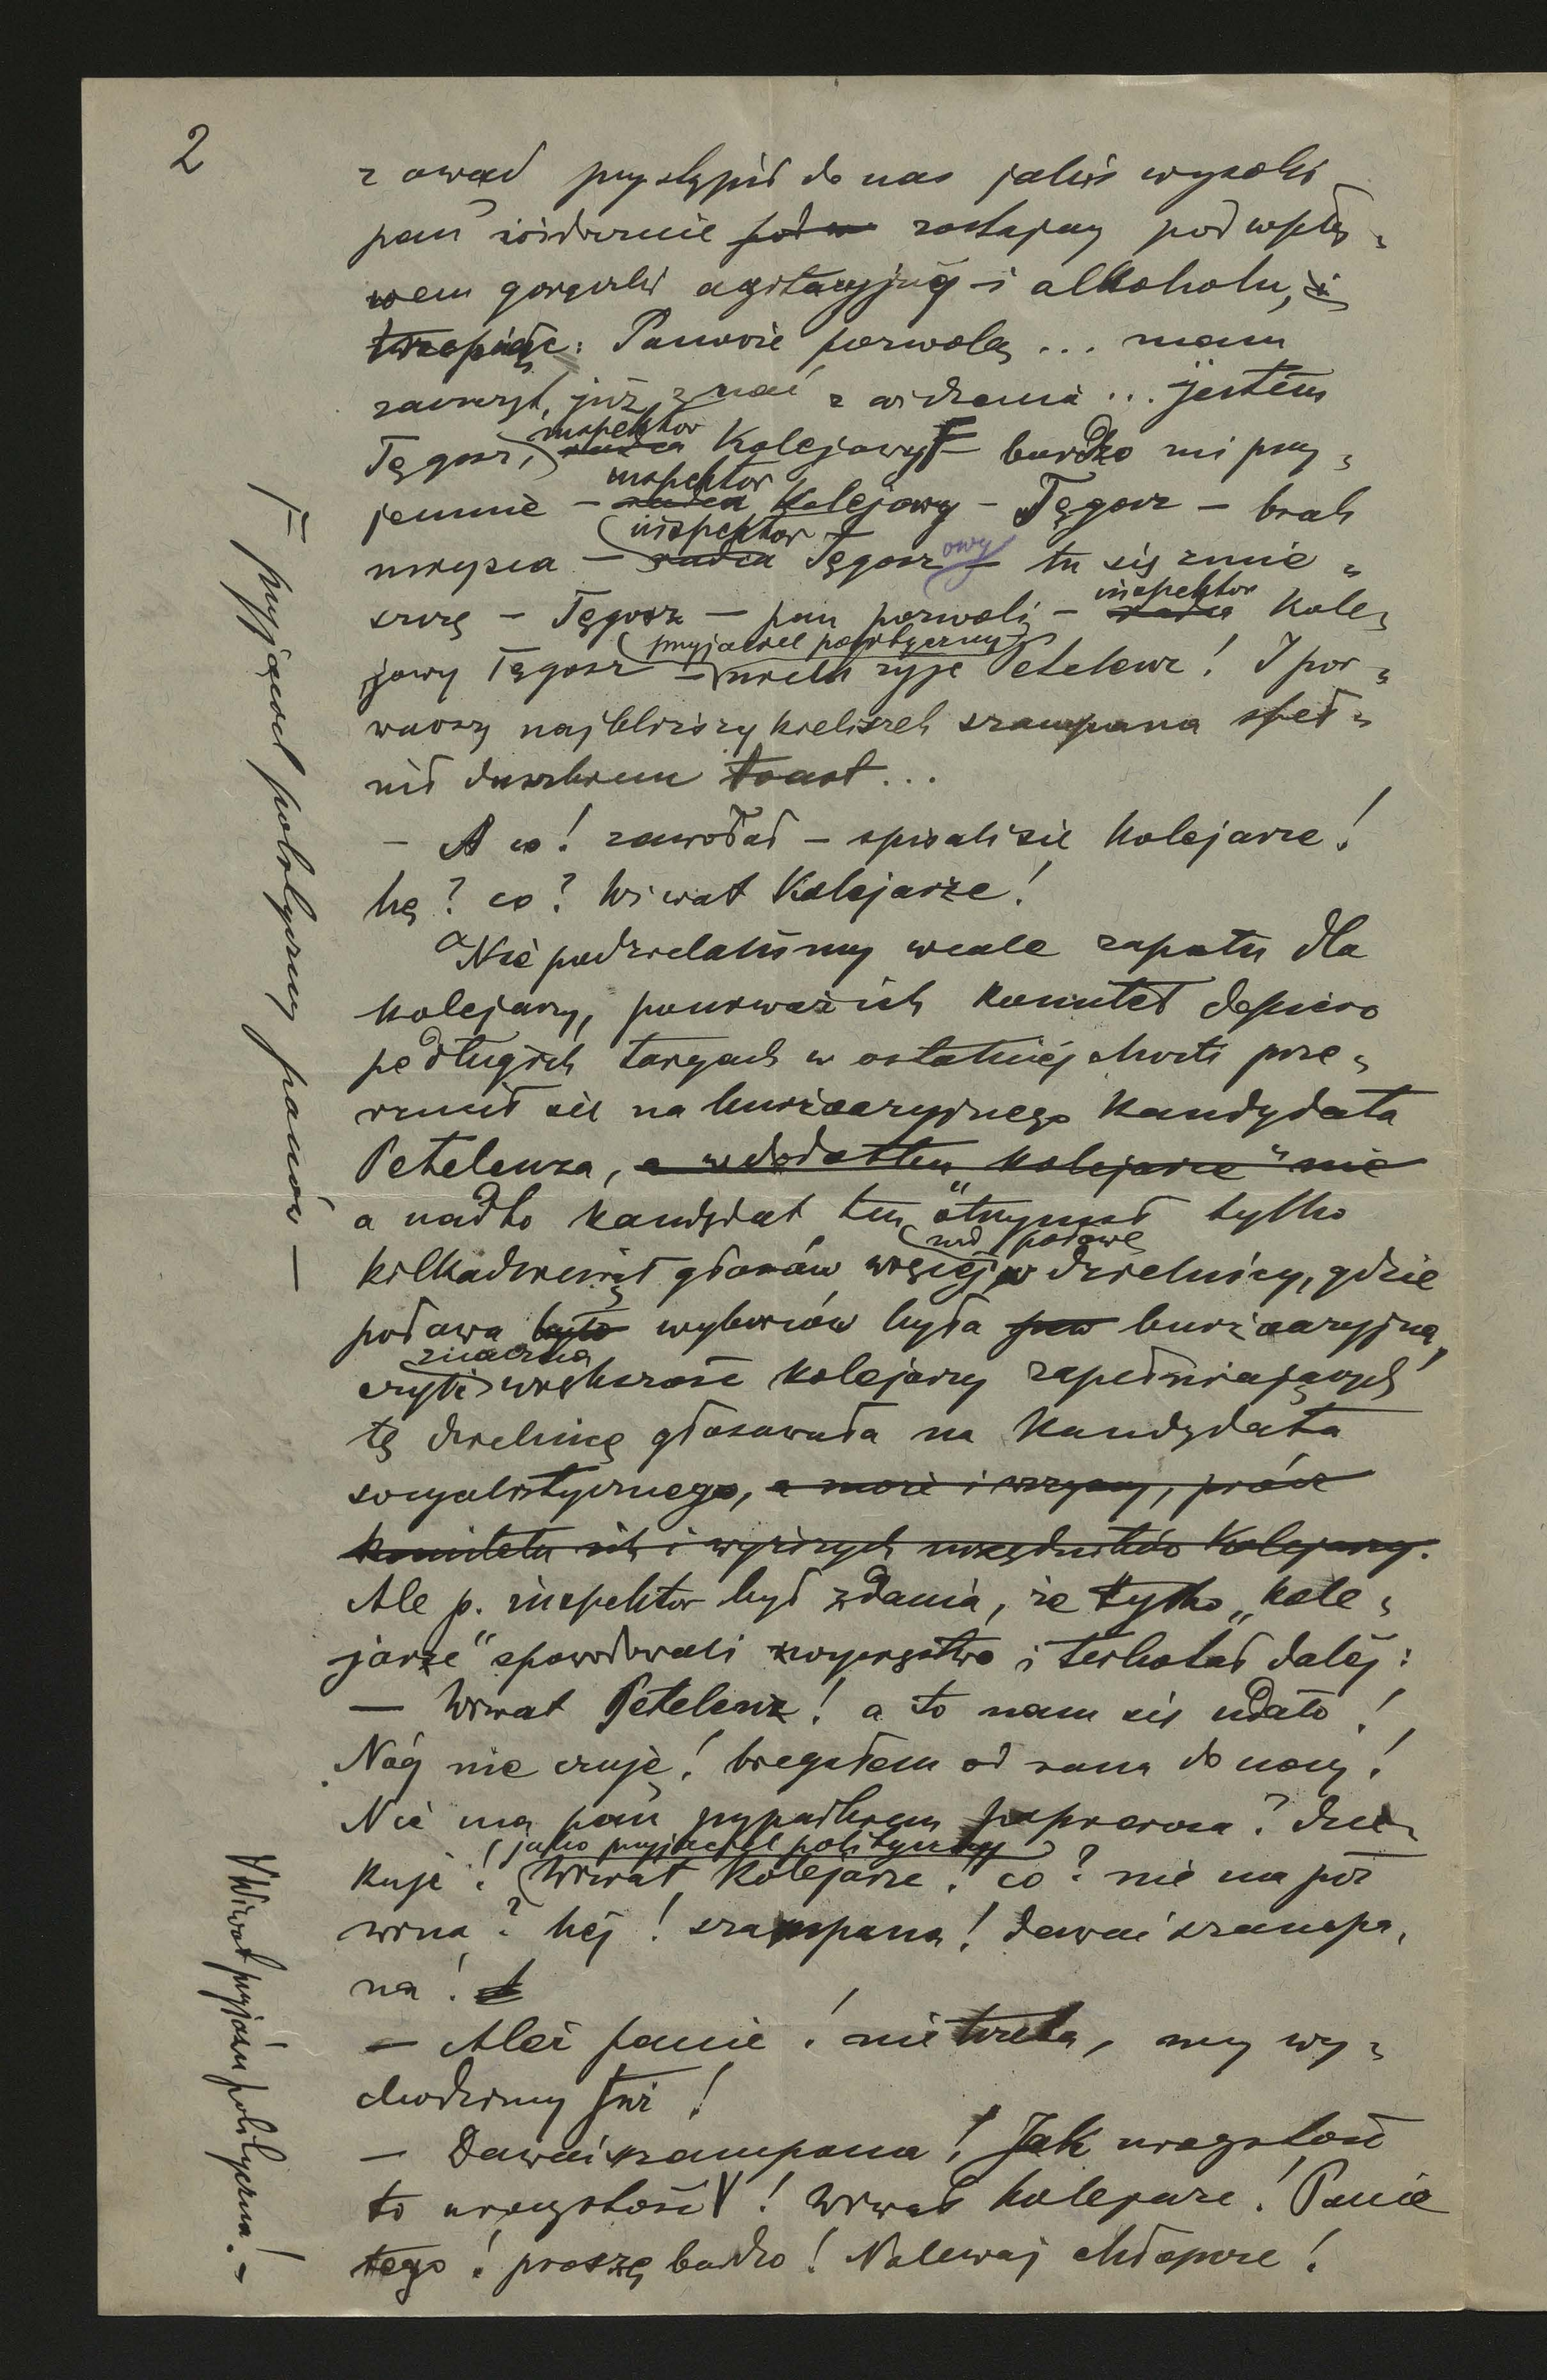 2
zawad przystąpił do nas jakiś wysoki
pan widocznie zostający pod wpły-
wem gorączki agitacyjnej i alkoholu,
Panowie pozwolą ... mam
zaszczyt już znać z widzenia ... jestem
Tęgosz, inspektor kolejowy – bardzo mi przy-
jemnie – inspektor kolejowy – Tęgosz – brak
miejsca – inspektor Tęgoszowy – tu się zmie-
szczę – Tęgosz – pan pozwoli – inspektor kole-
jowy Tęgosz – przyjaciel polityczny – niech żyje Petelenz! I por-
wawszy najbliższy kieliszek szampana speł-
nił duszkiem toast...
– A co! zawołał – spisali się kolejarze!
hę? co? Wiwat Kolejarze!
Nie podzielaliśmy wcale zapału dla
kolejarzy, ponieważ ich komitet dopiero
po długich targach w ostatniej chwili prze-
rzucił się na burżoazyjnego kandydata
Petelenza, a w dodatku „kolejarze” nie
a nadto kandydat ten otrzymał tylko
kilkadziesiąt głosów więcej nad połowę w dzielnicy, gdzie
połowa wyborców była burżoazyjną,
czyli znaczna większość kolejarzy zapełniających
tę dzielnicę głosowała na kandydata
socyalistycznego, a może i wszyscy, prócz
komitetu ich i wyższych urzędników kolejowych.
Ale p. inspektor był zdania, że tylko „kole-
jarze” spowodowali zwycięstwo i terkotał dalej:
– Wiwat Petelenz! a to nam się udało!
Nóg nie czuję! biegałem od rana do nocy!
Nie ma pan przypadkiem papierosa? dzię-
kuję! jako przyjaciel polityczny Wiwat Kolejarze! co? nie ma już
wina? hej! szampana! dawaj szampa-
na!
– Ależ panie! nie trzeba, my wy-
chodzimy już!
– Dawaj szampana! Jak uroczystość
to uroczystość! Wiwat kolejarze! Panie
tego! proszę bardzo! Nalewaj chłopcze!
przyjaciel polityczny panów –
Wiwat przyjaźń polityczna! –